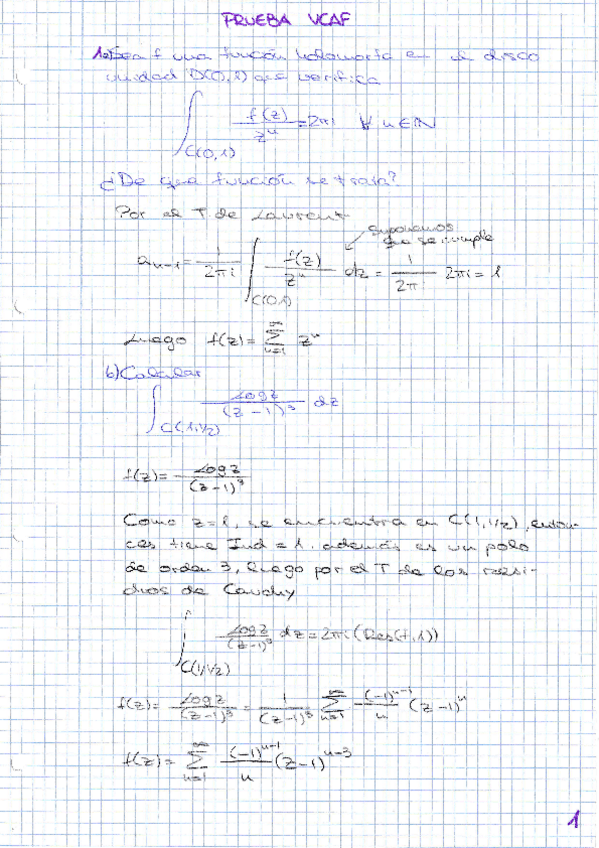 PRUEBA VCAF
1. a) Sea f una función holomorfa en el disco
unidad D(0,1) que verifica
∫_{C(0,1)} f(z)/z^n = 2πi ∀ n∈ℕ
¿De que función se trata?
Por el T. de Laurent
suponemos
que se cumple
a_{n-1} = 1/(2πi) ∫_{C(0,1)} f(z)/z^n dz = 1/(2πi) 2πi = 1
Luego f(z) = ∑_{n=1}^{∞} z^n
b) Calcular
∫_{C(1,1/2)} Log z/(z-1)^3 dz
f(z) = Log z/(z-1)^3
Como z=1, se encuentra en C(1,1/2), enton-
ces tiene Ind = 1. además es un polo
de orden 3, luego por el T de los resi-
duos de Cauchy
∫_{C(1,1/2)} Log z/(z-1)^3 dz = 2πi (Res(f,1))
f(z) = Log z/(z-1)^3 = 1/(z-1)^3 ∑_{n=1}^{∞} (-1)^{n-1}/n (z-1)^n
f(z) = ∑_{n=1}^{∞} (-1)^{n-1}/n (z-1)^{n-3}
1